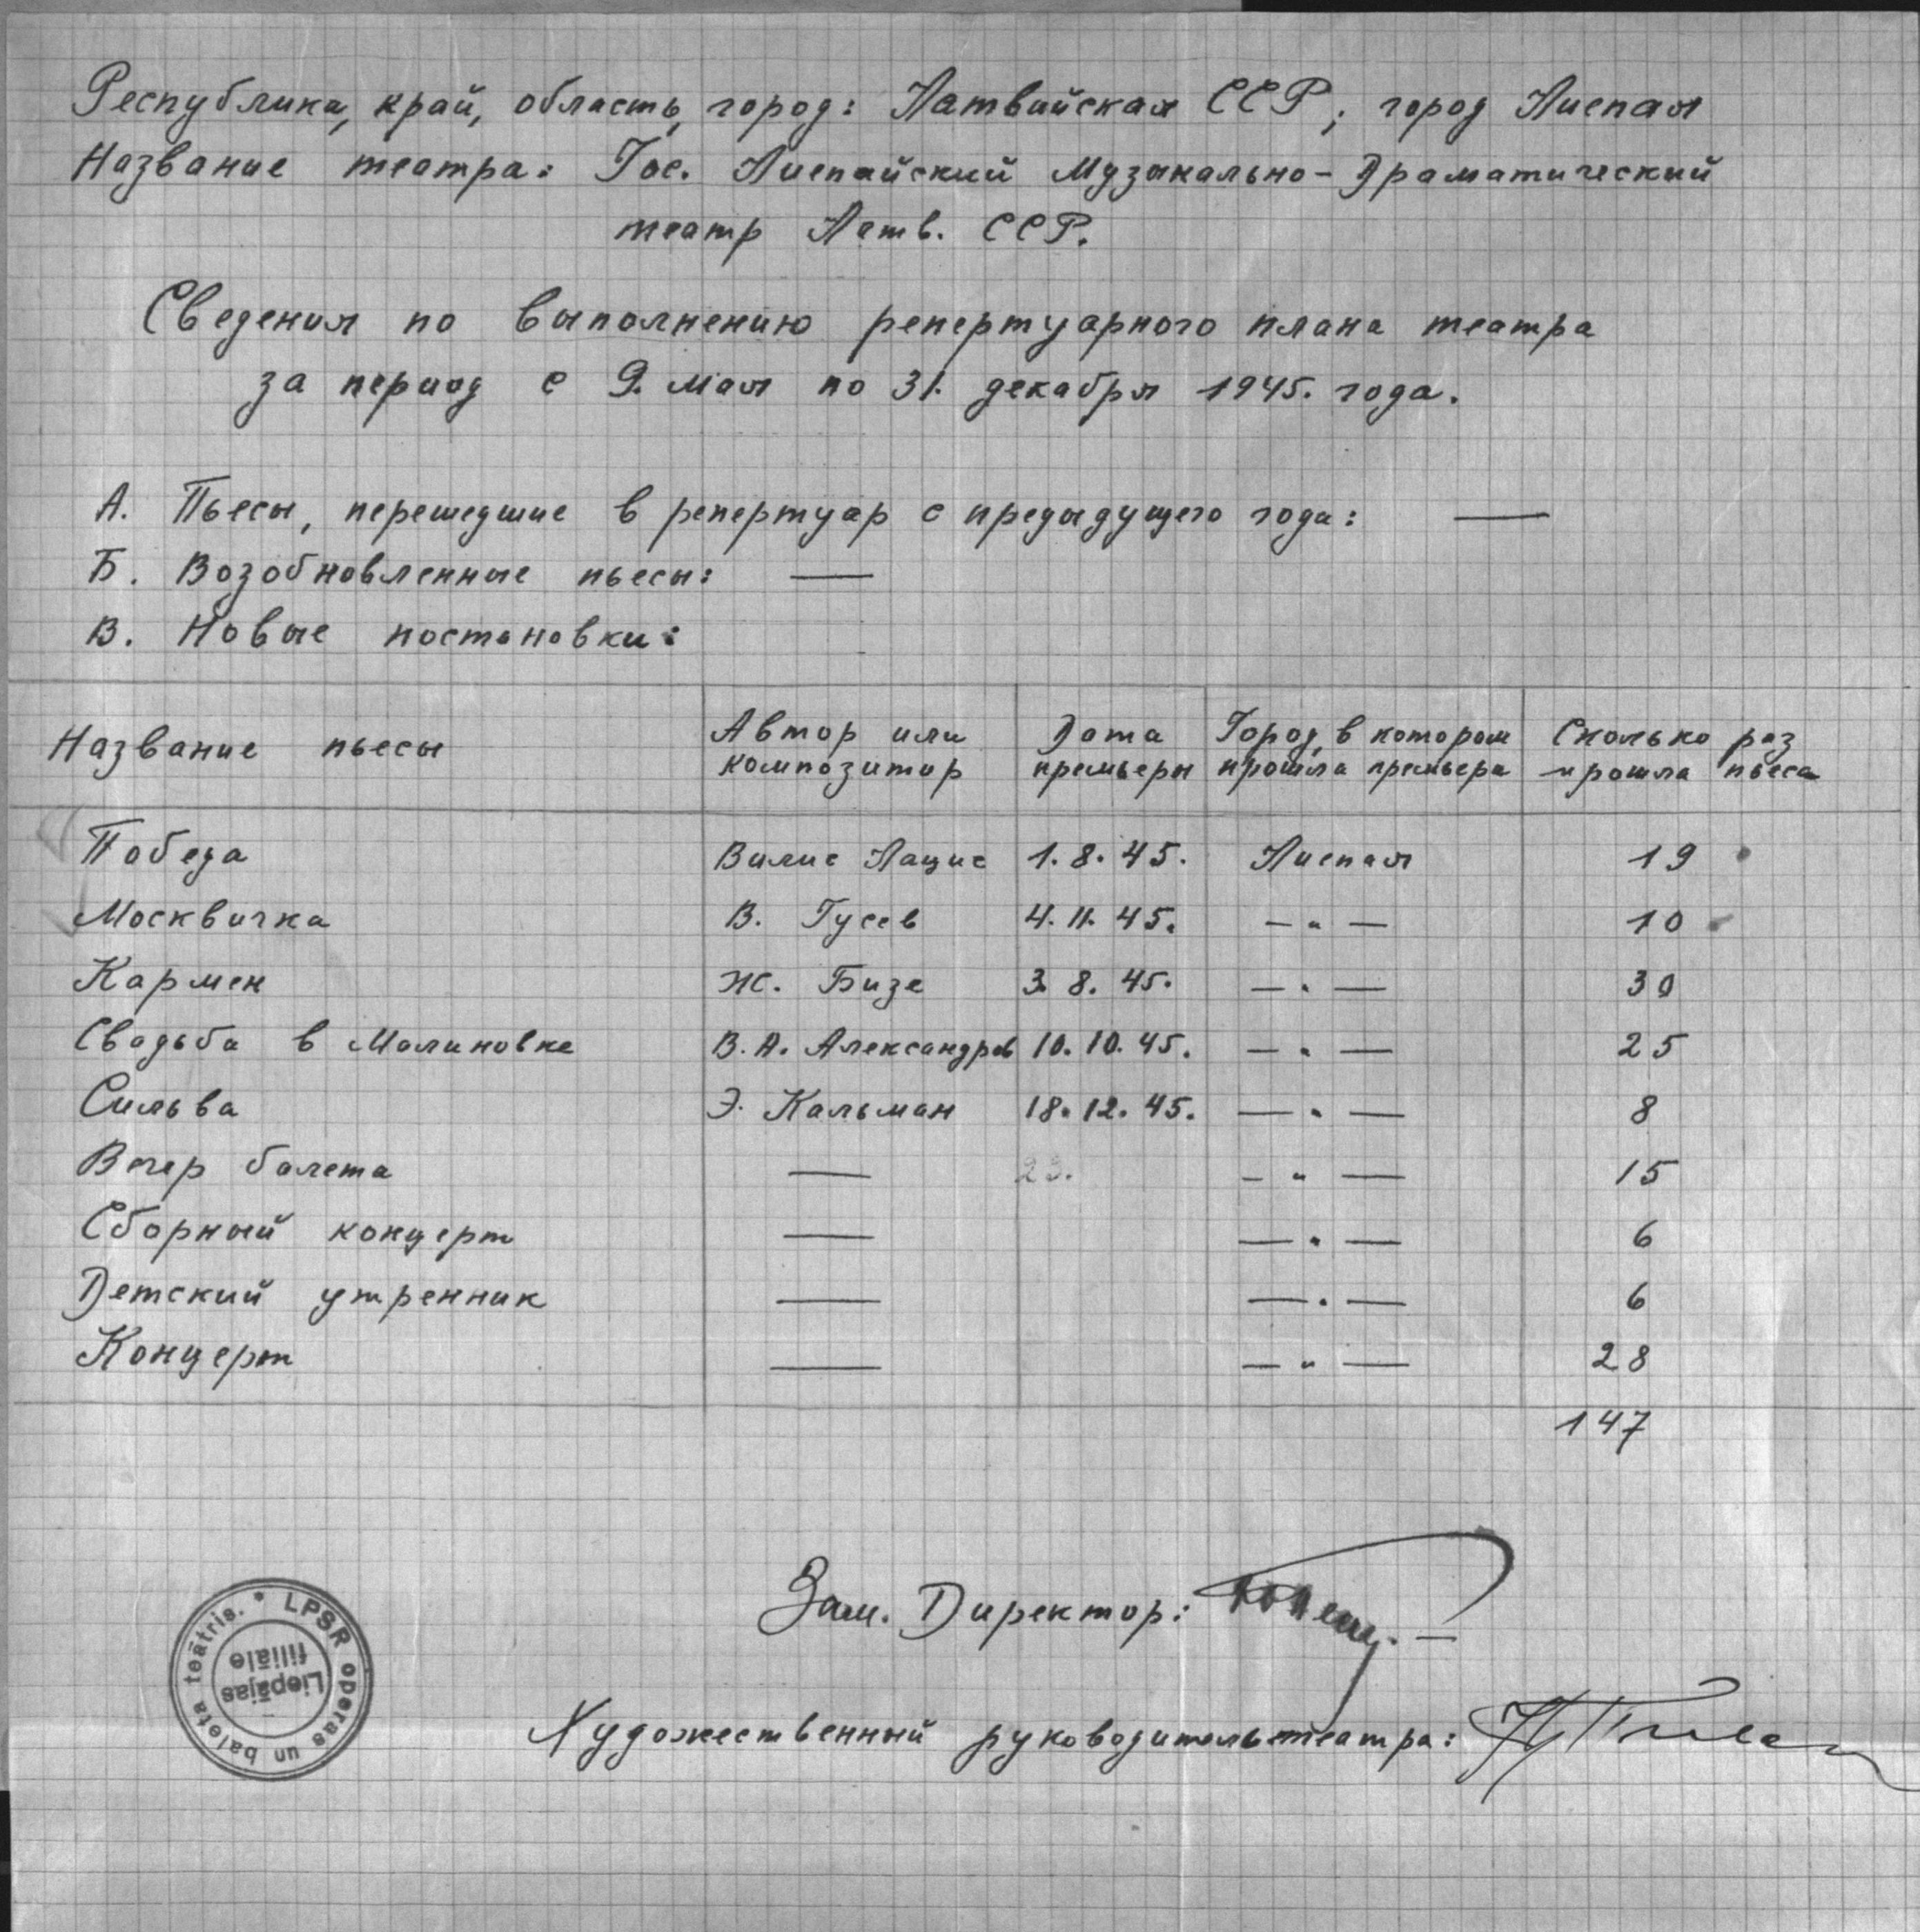 Республика, край, область, город: Латвийская ССР; город Лиепая
Название театра: Гос. Лиепайский Музыкально-Драматический
театр Латв. ССР.
Сведения по выполнению репертуарного плана театра
за период с 9. мая по 31. декабря 1945. года.
А. Пьесы, перешедшие в репертуар с предыдущего года: —
Б. Возобновленные пьесы: —
В. Новые постановки:
Название пьесы Автор или композитор Дата премьеры Город, в котором прошла премьера Сколько раз прошла пьеса
Победа Вилис Лацис 1.8.45. Лиепая 19
Москвичка В. Гусев 4.11.45. — " — 10
Кармен Ж. Бизе 3.8.45. — " — 30
Свадьба в Малиновке В.А. Александров 10.10.45. — " — 25
Сильва Э. Кальман 18.12.45. — " — 8
Вечер балета — 23. — " — 15
Сборный концерт — — " — 6
Детский утренник — — " — 6
Концерт — — " — 28
147
Зам. Директор:
Художественный руководитель театра:
LPSR operas un baleta teātris.
Liepājas
filiāle